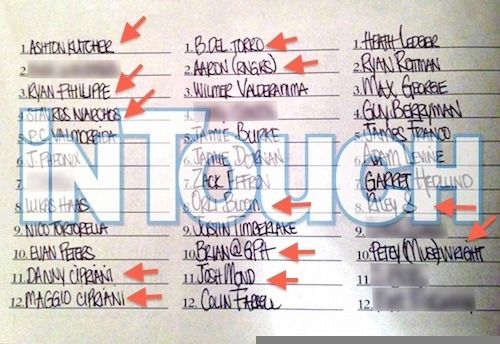 1. ASHTON KUTCHER
2.
3. RYAN PHILIPPE
4. STAVROS NIARCHOS
5. P.C. VALMORBIDA
6. J. PHEONIX
7.
8. LUKAS HAAS
9. NICO TORTORELLA
10. EVAN PETERS
11. DANNY CIPRIANI
12. MAGGIO CIPRIANI
1. B. DEL TORRO
2. AARON
3. WILMER VALDERAMMA
4.
5. JAMIE BURKE
6. JAMIE DORNAN
7. ZACK EFFRON
8. ORLY BLOOM
9. JUSTIN TIMBERLAKE
10. BRIAN @ GPA
11. JOSH MOND
12. COLIN FARRELL
1. HEATH LEDGER
2. RYAN ROTTMAN
3. MAX GEORGE
4. GUY BERRYMAN
5. JAMES FRANCO
6. ADAM LEVINE
7. GARRET HEDLUND
8. RILEY S
9.
10. PETEY (MUSE) WRIGHT
11.
12.
INTOUCH